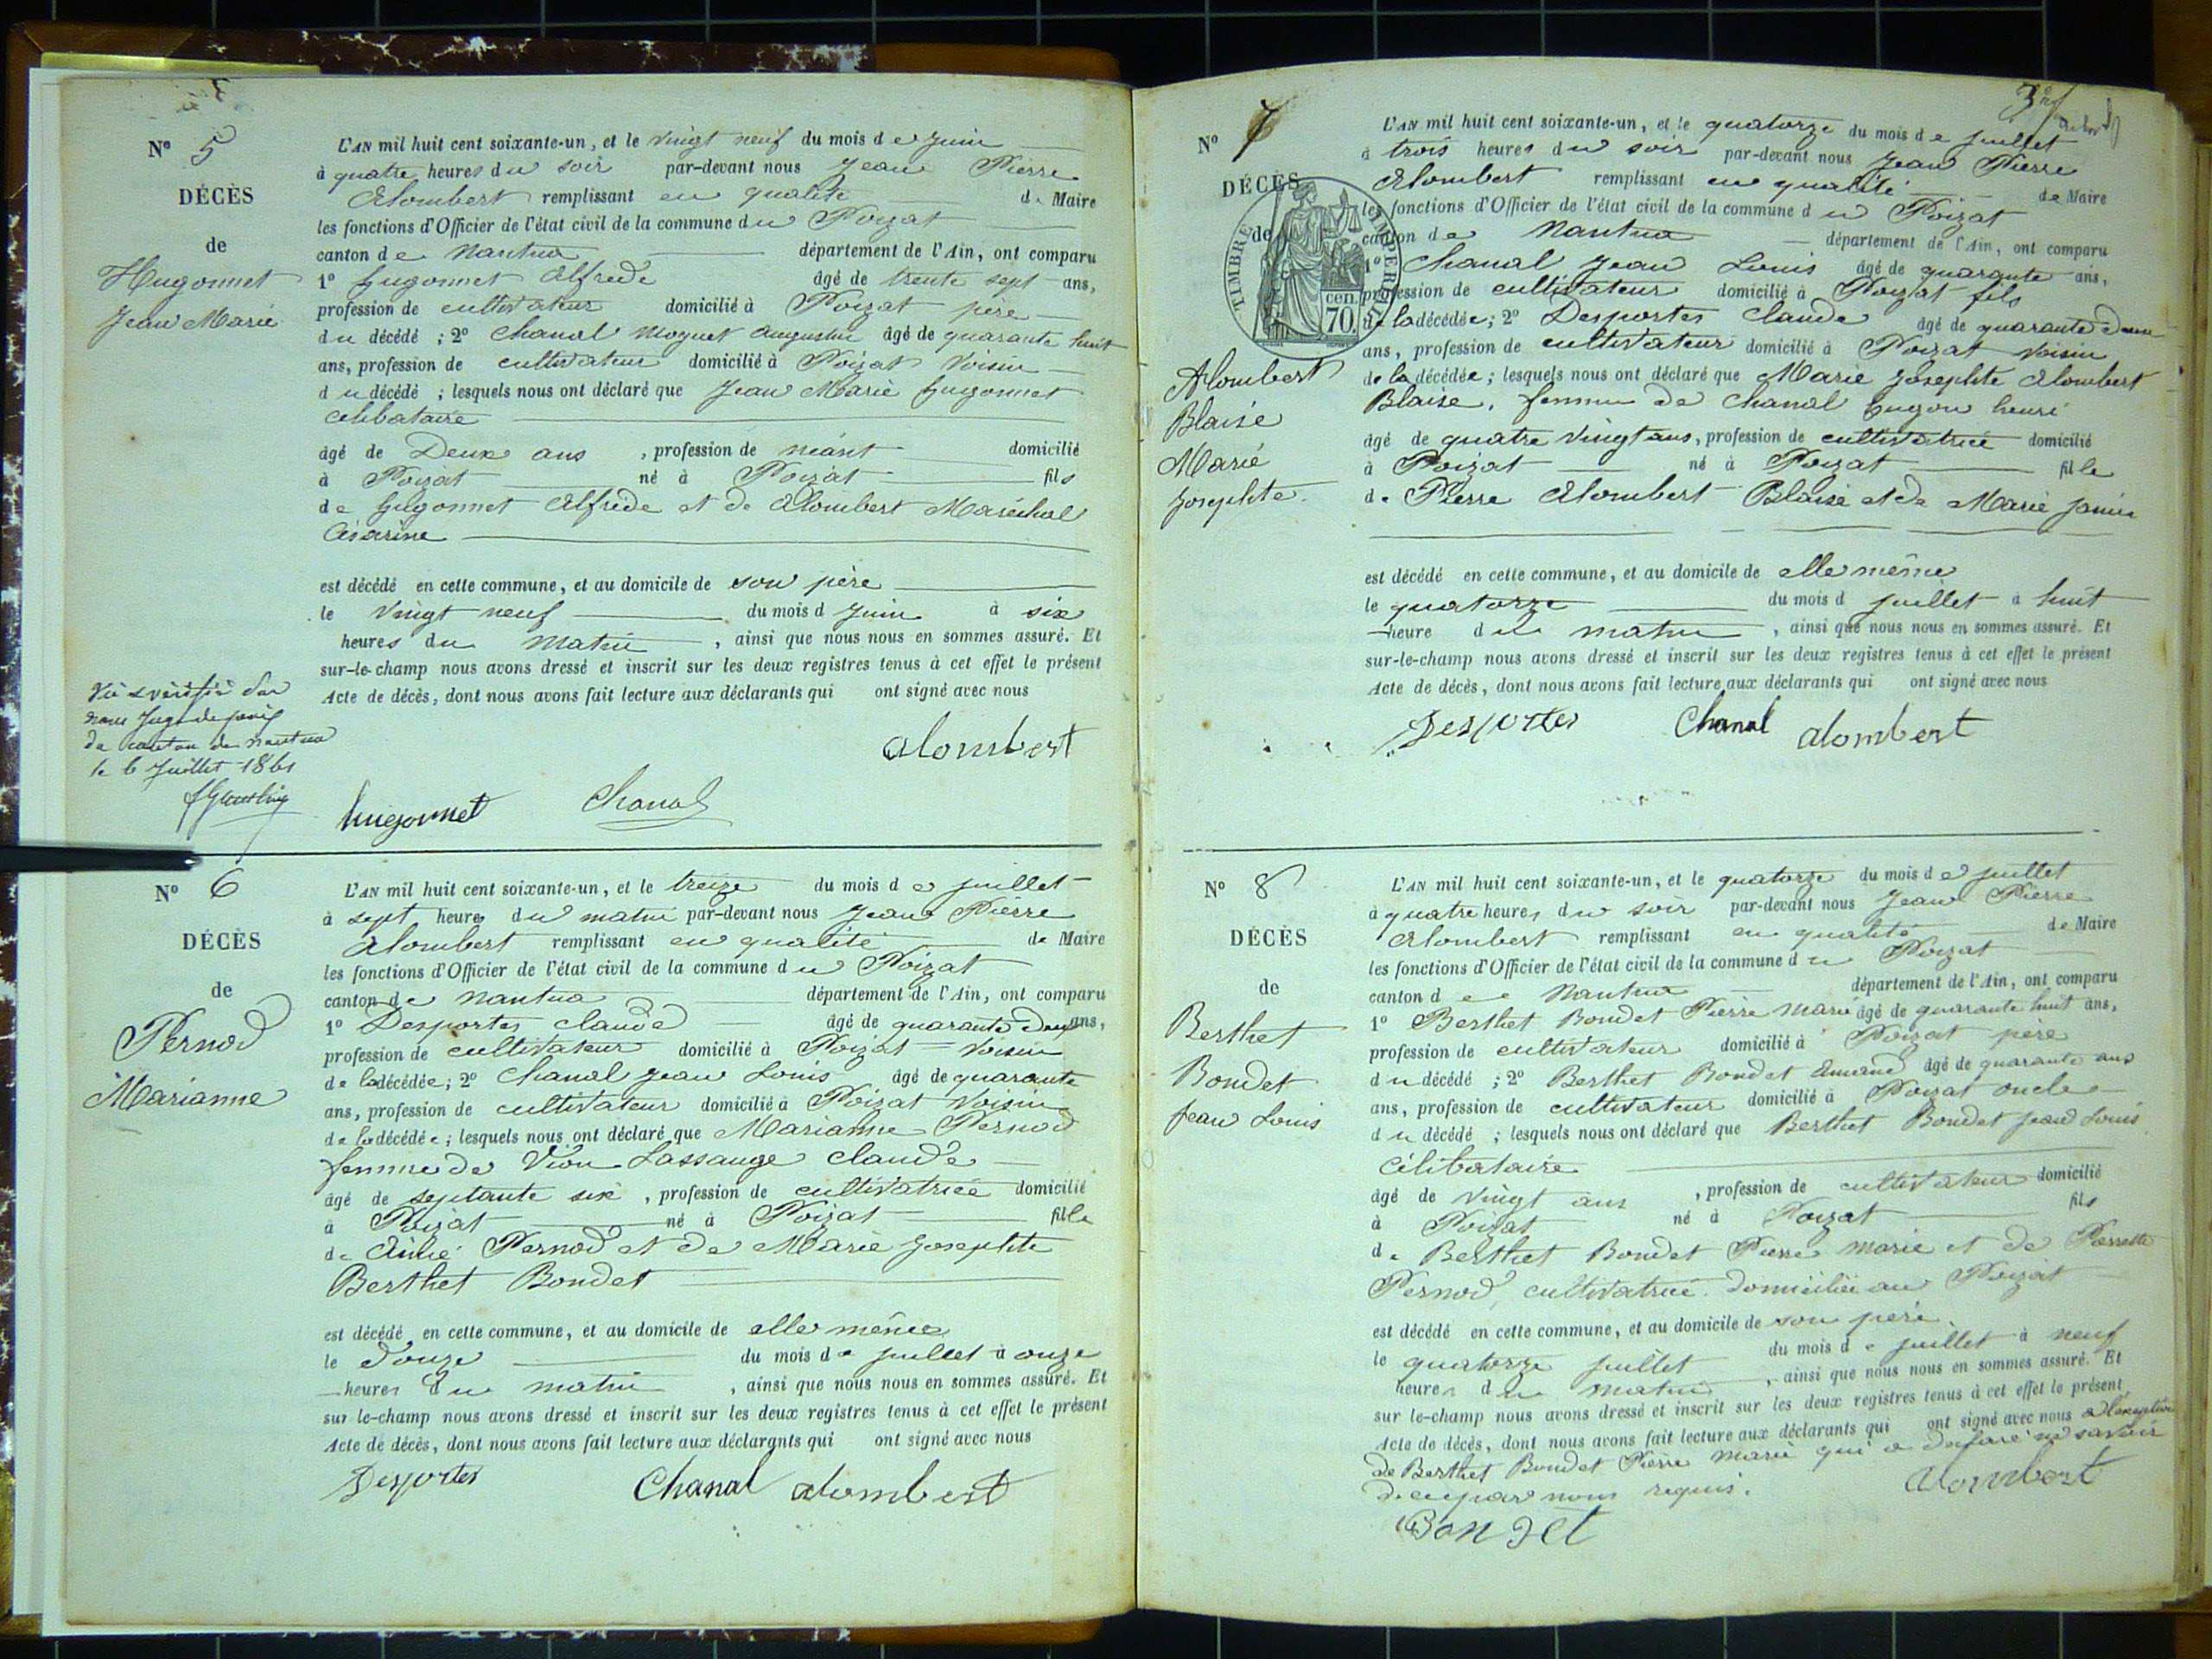 N° 5
DÉCÈS
de
Hugonnet
Jean Marie
L'AN mil huit cent soixante-un, et le vingt neuf du mois de juin
à quatre heures du soir par-devant nous Jean Pierre
Alombert remplissant en qualité de Maire
les fonctions d'Officier de l'état civil de la commune du Poizat
canton de Nantua département de l'Ain, ont comparu
1° hugonnet Alfrede âgé de trente sept ans,
profession de cultivateur domicilié à Poizat père
du décédé ; 2° Chanal Moguet Augustin âgé de quarante huit
ans, profession de cultivateur domicilié à Poizat Voisin
du décédé ; lesquels nous ont déclaré que Jean Marie hugonnet
célibataire
âgé de Deux ans , profession de néant domicilié
à Poizat né à Poizat fils
de hugonnet Alfrede et de Alombert Maréchal
Césarine
est décédé en cette commune, et au domicile de son père
le vingt neuf du mois d juin à six
heures du matin , ainsi que nous nous en sommes assuré. Et
sur-le-champ nous avons dressé et inscrit sur les deux registres tenus à cet effet le présent
Acte de décès, dont nous avons fait lecture aux déclarants qui ont signé avec nous
Vu & vérifié par
nous Juge de paix
du canton de Nantua
le 6 Juillet 1861
alombert
hugonnet Chanal
N° 6
DÉCÈS
de
Pernod
Marianne
L'AN mil huit cent soixante-un, et le treize du mois de juillet
à sept heures du matin par-devant nous Jean Pierre
Alombert remplissant en qualité de Maire
les fonctions d'Officier de l'état civil de la commune du Poizat
canton de Nantua département de l'Ain, ont comparu
1° Desportes Claude âgé de quarante deux ans,
profession de cultivateur domicilié à Poizat Voisin
de la décédée ; 2° Chanal Jean Louis âgé de quarante
ans, profession de cultivateur domicilié à Poizat Voisin
de la décédée ; lesquels nous ont déclaré que Marianne Pernod
femme de Vion Lassauge Claude
âgé de septante six , profession de cultivatrice domicilié
à Poizat né à Poizat fille
de Aimé Pernod et de Marie Josephte
Berthet Bondet
est décédé en cette commune, et au domicile de elle même
le Douze du mois de juillet à onze
heures du matin , ainsi que nous nous en sommes assuré. Et
sur le-champ nous avons dressé et inscrit sur les deux registres tenus à cet effet le présent
Acte de décès, dont nous avons fait lecture aux déclarants qui ont signé avec nous
Desportes Chanal alombert
N° 7
DÉCÈS
de
TIMBRE IMPERIAL
70 cen.
Alombert
Blaise
Marie
Josephte.
L'AN mil huit cent soixante-un, et le quatorze du mois de juillet
à trois heures du soir par-devant nous Jean Pierre
Alombert remplissant en qualité de Maire
les fonctions d'Officier de l'état civil de la commune du Poizat
canton de Nantua département de l'Ain, ont comparu
1° Chanal Jean Louis âgé de quarante ans,
profession de cultivateur domicilié à Poizat fils
de la décédée ; 2° Desportes Claude âgé de quarante deux
ans, profession de cultivateur domicilié à Poizat Voisin
de la décédée ; lesquels nous ont déclaré que Marie Josephte Alombert
Blaise, femme de Chanal hugon henri
âgé de quatre vingt ans, profession de cultivatrice domicilié
à Poizat né à Poizat fille
de Pierre Alombert Blaise et de Marie Janin
est décédé en cette commune, et au domicile de elle même
le quatorze du mois d juillet à huit
heure du matin , ainsi que nous nous en sommes assuré. Et
sur-le-champ nous avons dressé et inscrit sur les deux registres tenus à cet effet le présent
Acte de décès, dont nous avons fait lecture aux déclarants qui ont signé avec nous
Desportes Chanal alombert
N° 8
DÉCÈS
de
Berthet
Bondet
Jean Louis
L'AN mil huit cent soixante-un, et le quatorze du mois de juillet
à quatre heures du soir par-devant nous Jean Pierre
Alombert remplissant en qualité de Maire
les fonctions d'Officier de l'état civil de la commune du Poizat
canton de Nantua département de l'Ain, ont comparu
1° Berthet Bondet Pierre Marie âgé de quarante huit ans,
profession de cultivateur domicilié à Poizat père
du décédé ; 2° Berthet Bondet Amand âgé de quarante ans
ans, profession de cultivateur domicilié à Poizat oncle
du décédé ; lesquels nous ont déclaré que Berthet Bondet Jean Louis
Célibataire
âgé de vingt ans , profession de cultivateur domicilié
à Poizat né à Poizat fils
de Berthet Bondet Pierre Marie et de Pierrette
Pernod, cultivatrice domiciliée au Poizat
est décédé en cette commune, et au domicile de son père
le quatorze juillet du mois de juillet à neuf
heures du matin , ainsi que nous nous en sommes assuré. Et
sur le-champ nous avons dressé et inscrit sur les deux registres tenus à cet effet le présent
Acte de décès, dont nous avons fait lecture aux déclarants qui ont signé avec nous à l'exception
de Berthet Bondet Pierre Marie qui a déclaré ne savoir
de ce par nous requis.
alombert
Bondet